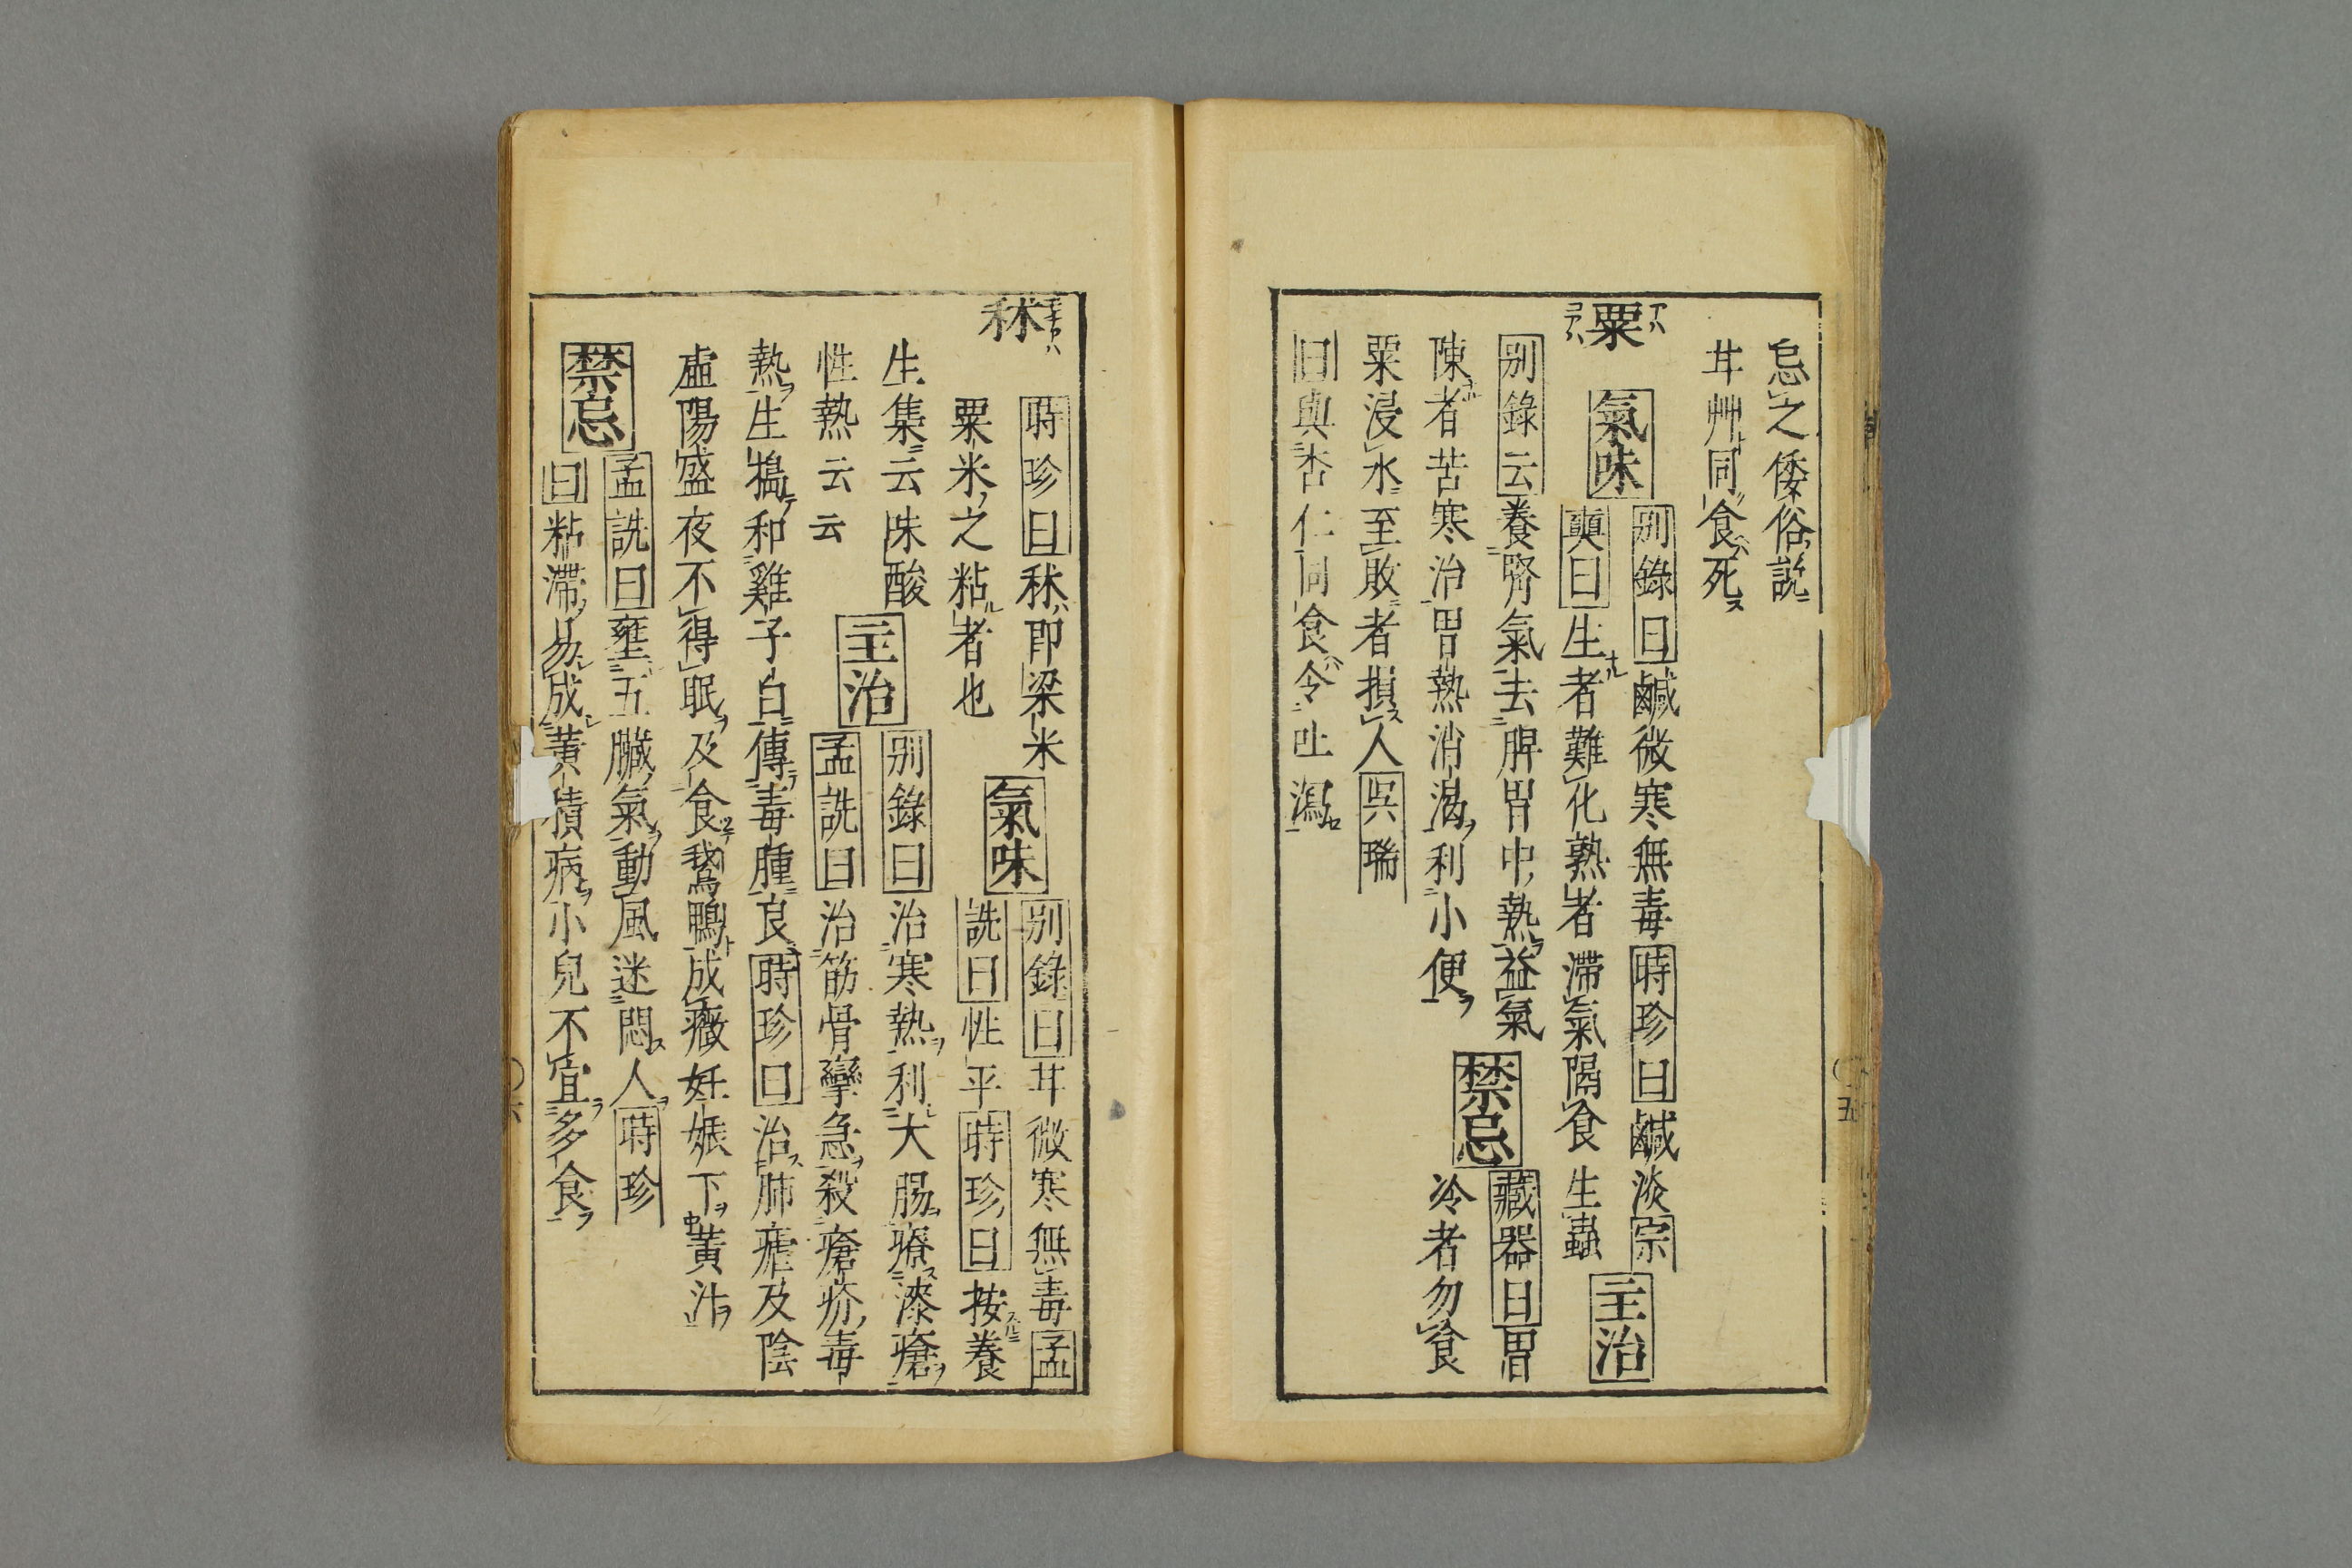 忌之倭俗説
甘艸同食死
粟
氣味
別錄曰鹹微寒無毒時珍曰鹹淡宗
奭曰生者難化熟者滯氣隔食生蟲
主治
別錄云養腎氣去脾胃中熱益氣
陳者苦寒治胃熱消渇利小便
禁忌
藏器曰胃
冷者勿食
粟浸水至敗者損人呉瑞
曰與杏仁同食令吐瀉
秫
時珍曰秫即梁米
粟米之粘者也
氣味
別錄曰甘微寒無毒孟
詵曰性平時珍曰按養
生集云味酸
性熱云云
主治
別錄曰治寒熱利大腸療漆瘡
孟詵曰治筋骨攣急殺瘡疥毒
熱生搗和雞子白傳毒腫良時珍曰治肺瘧及陰
虛陽盛夜不得眠及食鵞鴨成癥妊娠下黃汁
禁忌
孟詵曰壅五臟氣動風迷悶人時珍
曰粘滯易成黃積病小兒不宜多食